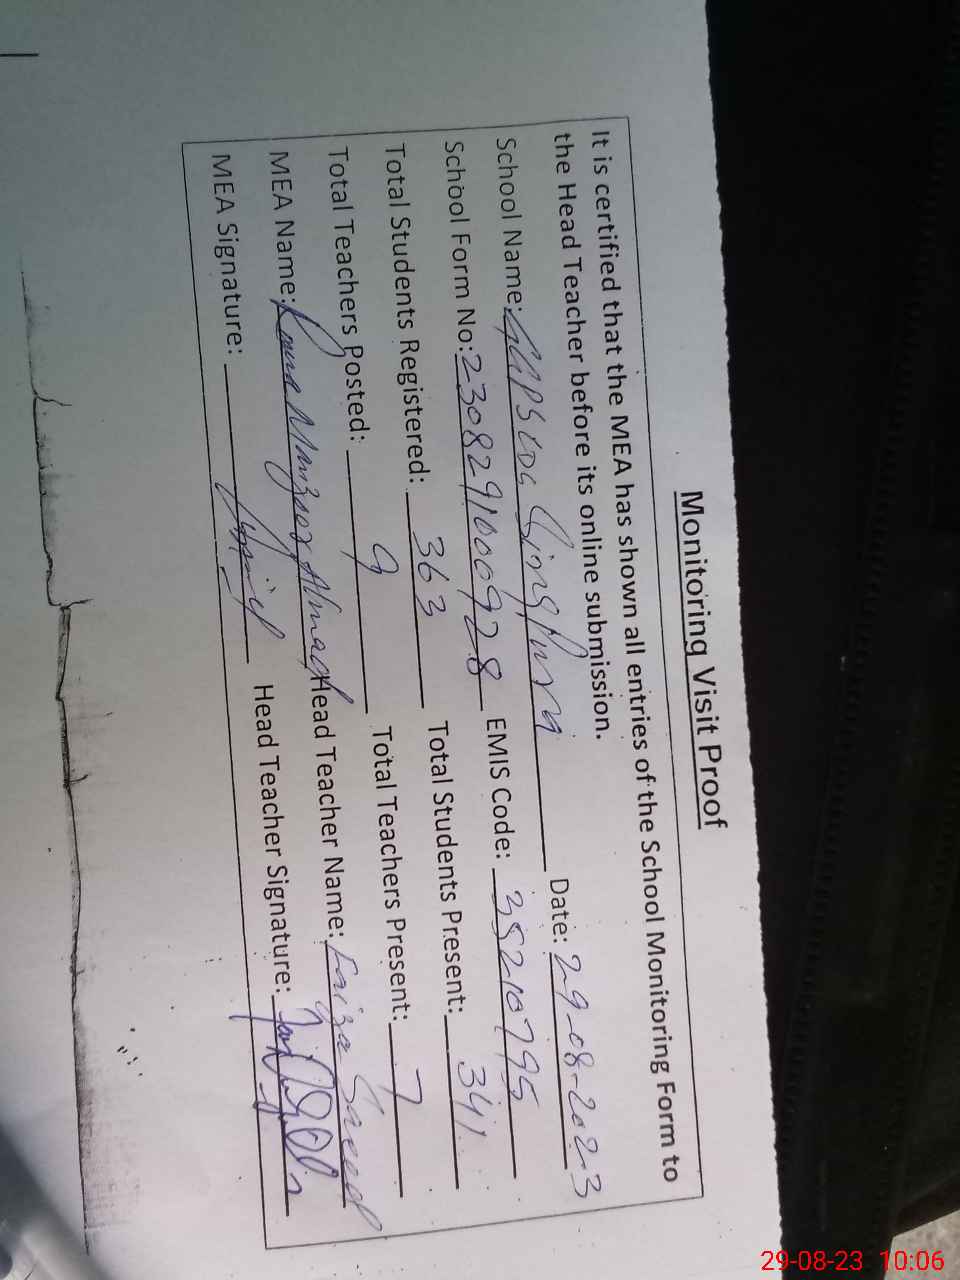 Monitoring Visit Proof
It is certified that the MEA has shown all entries of the School Monitoring Form to
the Head Teacher before its online submission.
School Name: GMPS Date: 29-08-2023
School Form No: 23082910000928 EMIS Code: 38210795
Total Students Registered: 363 Total Students Present: 341
Total Teachers Posted: 9 Total Teachers Present: 7
MEA Name: Rana Ahmad Head Teacher Name: Faiza Saeed
MEA Signature: Head Teacher Signature:
29-08-23 10:06